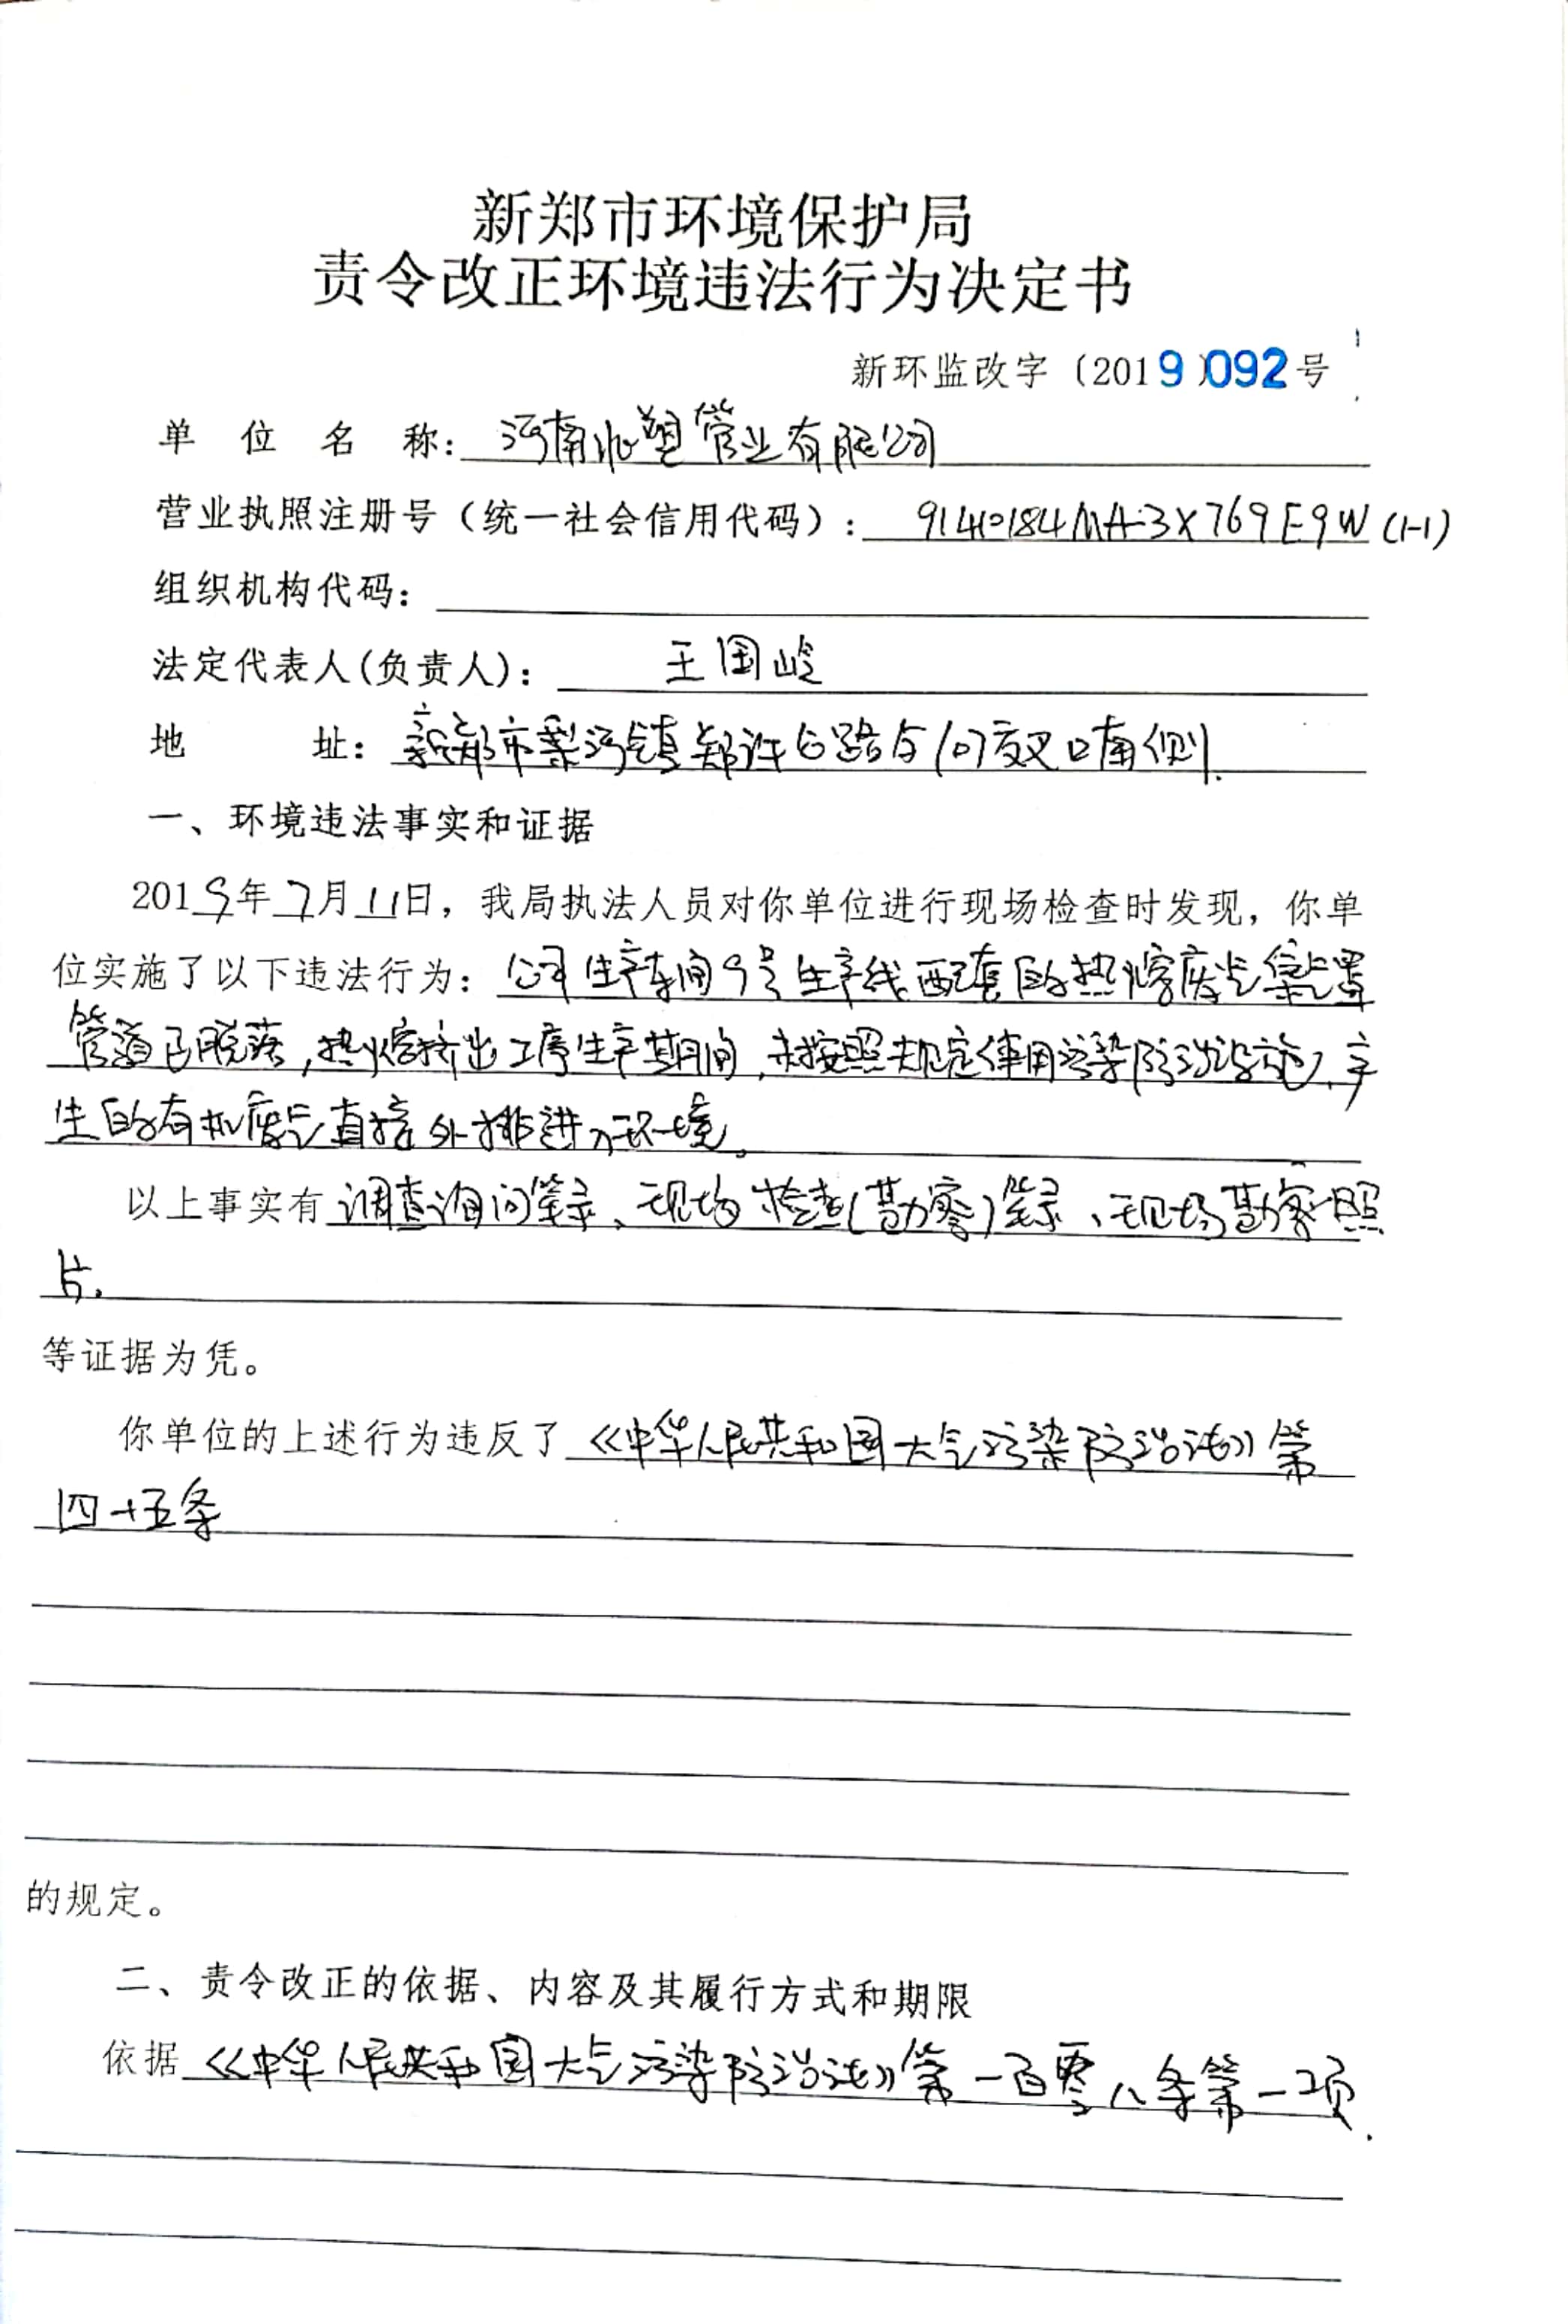 新郑市环境保护局
责令改正环境违法行为决定书
新环监改字〔2019〕092号
单位名称：河南兆塑管业有限公司
营业执照注册号（统一社会信用代码）：91410184MA3X769E9W(1-1)
组织机构代码：
法定代表人(负责人)：王国岭
地址：新郑市梨河镇郑许公路与107交叉口南侧.
一、环境违法事实和证据
2019年7月11日，我局执法人员对你单位进行现场检查时发现，你单
位实施了以下违法行为：公司生产车间9号生产线配套的热熔废气集气罩
管道已脱落,热熔挤出工序生产期间,未按照规定使用污染防治设施,产
生的有机废气直接外排进入环境。
以上事实有调查询问笔录、现场检查(勘察)笔录、现场勘察照
片.
等证据为凭。
你单位的上述行为违反了《中华人民共和国大气污染防治法》第
四十五条
的规定。
二、责令改正的依据、内容及其履行方式和期限
依据《中华人民共和国大气污染防治法》第一百零八条第一项.